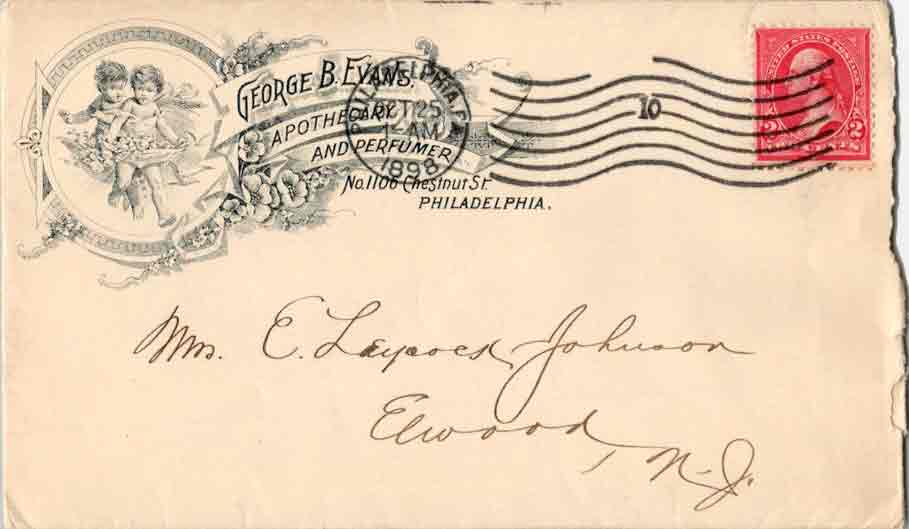 GEORGE B. EVANS.
APOTHECARY
AND PERFUMER
No. 1106 Chestnut St.
PHILADELPHIA.
PHILADELPHIA, PA
OCT 25
1898
10
UNITED STATES POSTAGE
2 2
TWO CENTS
Mrs. E. Laycock Johnson
Elwood,
N.J.